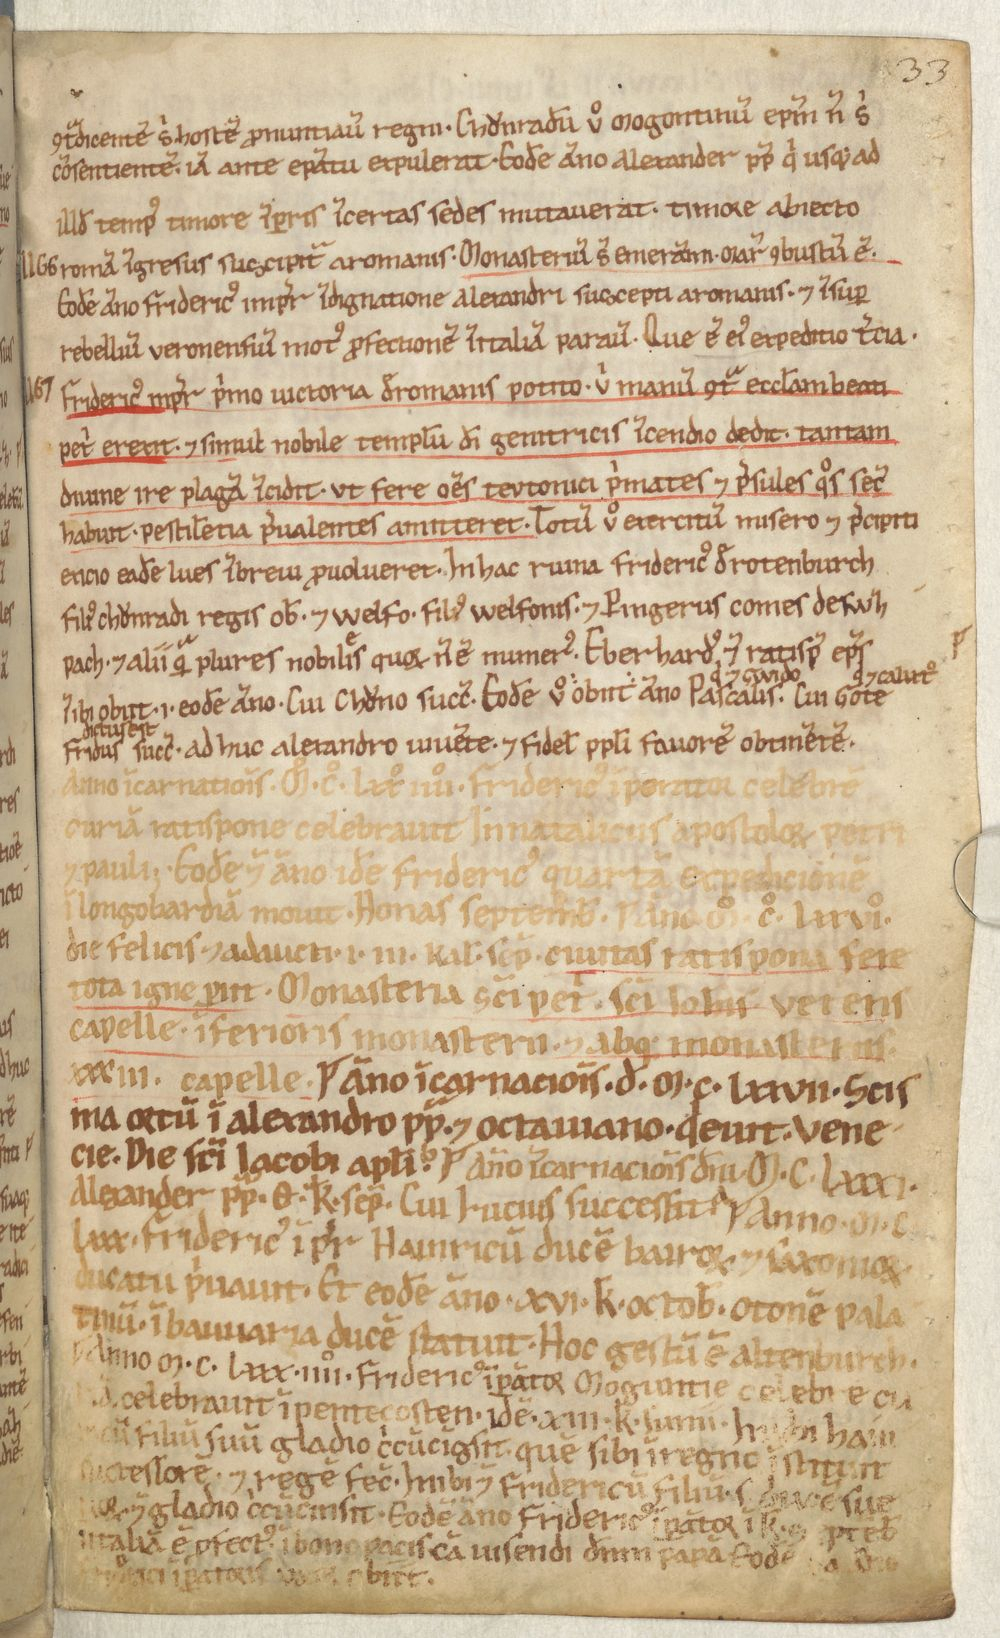 33
ꝯt̄dicentē s̄. hostē ꝓnuntiaū regni. Chūnradū v̊ mogontinū ep̄m n̄ s̄
cōsentientē. iā ante ep̄atu expulerat. Eodē āno alexander pp̄ q̄ usq; ad
illd̄ temp⁹ timore īp̄ris īcertas sedes mutauerat. timore abiecto
1166 romā īgresus suscipit͛ aromanis. Monasteriū s̄ emerāmi. mar̄ ꝯbustū ē.
Eodē āno frideric⁹ imp̄r īdignatione alexandri suscepti aromanis. ⁊ īsup
rebelliū veronensiū mot⁹ ꝓfectionē īitaliā paraū. Que ē ei⁹ expeditio t̄cia.
1167 frideric⁹ imp̄r p̄mo uictoria d̄romanis potito. v̄ manū ꝯt̄ eccl̄am beati
pet̄ erexit. ⁊ simul nobile templū di genitricis īcendio dedit. tantam
diuine ire plagā īcidit. vt fere om̄s teutonici p̄mates ⁊ p̄sules q̊s sec̄
habuit. pestilētia p̄ualentes amitteret. Totū v̊ exercitū misero ⁊ p̄cipiti
exicio eadē lues ībreui ꝓuolueret. In hac ruina frideric⁹ d̄rotenburch
fili⁹ chūnradi regis ob̄. ⁊ welfo. fili⁹ welfonis. ⁊ Pingerus comes de
pach. ⁊ alii q̄ plures nobiles quoꝝ n̄ ē numer⁹. Eberhard⁹ ⁊ ratisp̄ ep̄s
q ⁊ gwido q ⁊ calixt⁹
īibi obiit. i. eodē āno. Cui Chūno succ̄. Eodē v̊ obiit āno Pascalis. Cui Gote
dictus est
fridus succ̄. ad huc alexandro uiuēte. ⁊ fidel̄ ppl̄i fauorē obtinētē.
Anno īcarnatiōis. M̊. C̊. Lxx̊ iiii̊. frideric⁹ īperator celebrē
curiā ratispone celebrauit In nataliciis apostoloꝝ petri
⁊ pauli; Eodē ⁊ āno idē frideric⁹ quartā expedicionē
ī longobardiā mouit. Nonas septemb̄. Anno M̊. C̊. lxxvi̊.
die felicis ⁊ adaucti. i. iii. kal. sep̄. ciuitas ratispona fere
tota igne ꝑiit. Monasteria sc̄i pet̄. sc̄i iohis veteris
capelle. īferioris monasterii. ⁊ absq; monasteriis.
xxiii. capelle. Āno īcarnaciōis. d̄. M. C. lxxvii. Scis
ma ortū ī alexandro pp̄. ⁊ octauiano. q̄euit. Vene
cie. Die sc̄i Iacobi apl̄i. Āno īcarnaciōis dn̄i. M. C. Lxxxi.
Alexander pp̄. ꝫ. k̄. sep̄. Cui Lucius successit. Anno. M. C.
lxxx. frideric⁹ ī p̄r Hainricū ducē bairoꝝ. ⁊ saxonioꝝ.
ducatu p̄uauit. Et eodē āno. xvi. k̄. octob̄. otonē pala
tinū. ī bauuaria ducē statuit. Hoc gestū ē altenburch.
Anno M. C. Lxxx. iiii. frideric⁹ īp̄ator Moguntie celebrē cu
celebrauit ī pentecosten. idē. xiii. k̄. iunii. In ibi hain
filiū suū gladio c̄cūcīgsit. quē sibi ī regno īstituit
successorē. ⁊ regē fec̄. In ibi ⁊ fridericū filiū ducē sue
⁊ gladio c̄cūcinsit. Eodē āno frideric⁹ īp̄ator ī k̄.
italiā ē ꝓfect⁹. ī bono pacis cā uisendi dn̄m papā Eodē
īp̄atoris obiit.